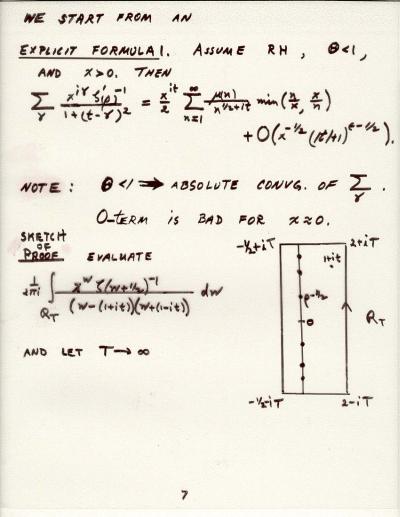 WE START FROM AN
EXPLICIT FORMULA 1. ASSUME RH, Θ<1,
AND X>0. THEN
∑_γ x^{iγ} ζ'(ρ)^{-1} / (1+(t-γ)^2) = x^{it}/2 ∑_{n=1}^{∞} μ(n)/n^{1/2+it} min(n/x, x/n)
+ O(x^{-1/2}(|t|+1)^{Θ-1/2}).
NOTE: Θ<1 ⟹ ABSOLUTE CONVG. OF ∑_γ.
O-TERM IS BAD FOR X≈0.
SKETCH
OF
PROOF EVALUATE
1/2πi ∫_{R_T} x^w ζ(w+1/2)^{-1} / (w-(1+it))(w+(1-it)) dw
AND LET T→∞
-1/2+iT 2+iT
1+it
ρ-1/2
0
R_T
-1/2-iT 2-iT
7